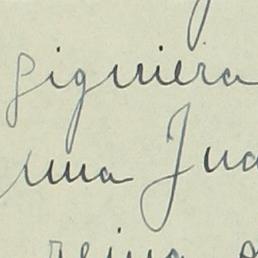 siquiera
una Jua
reina